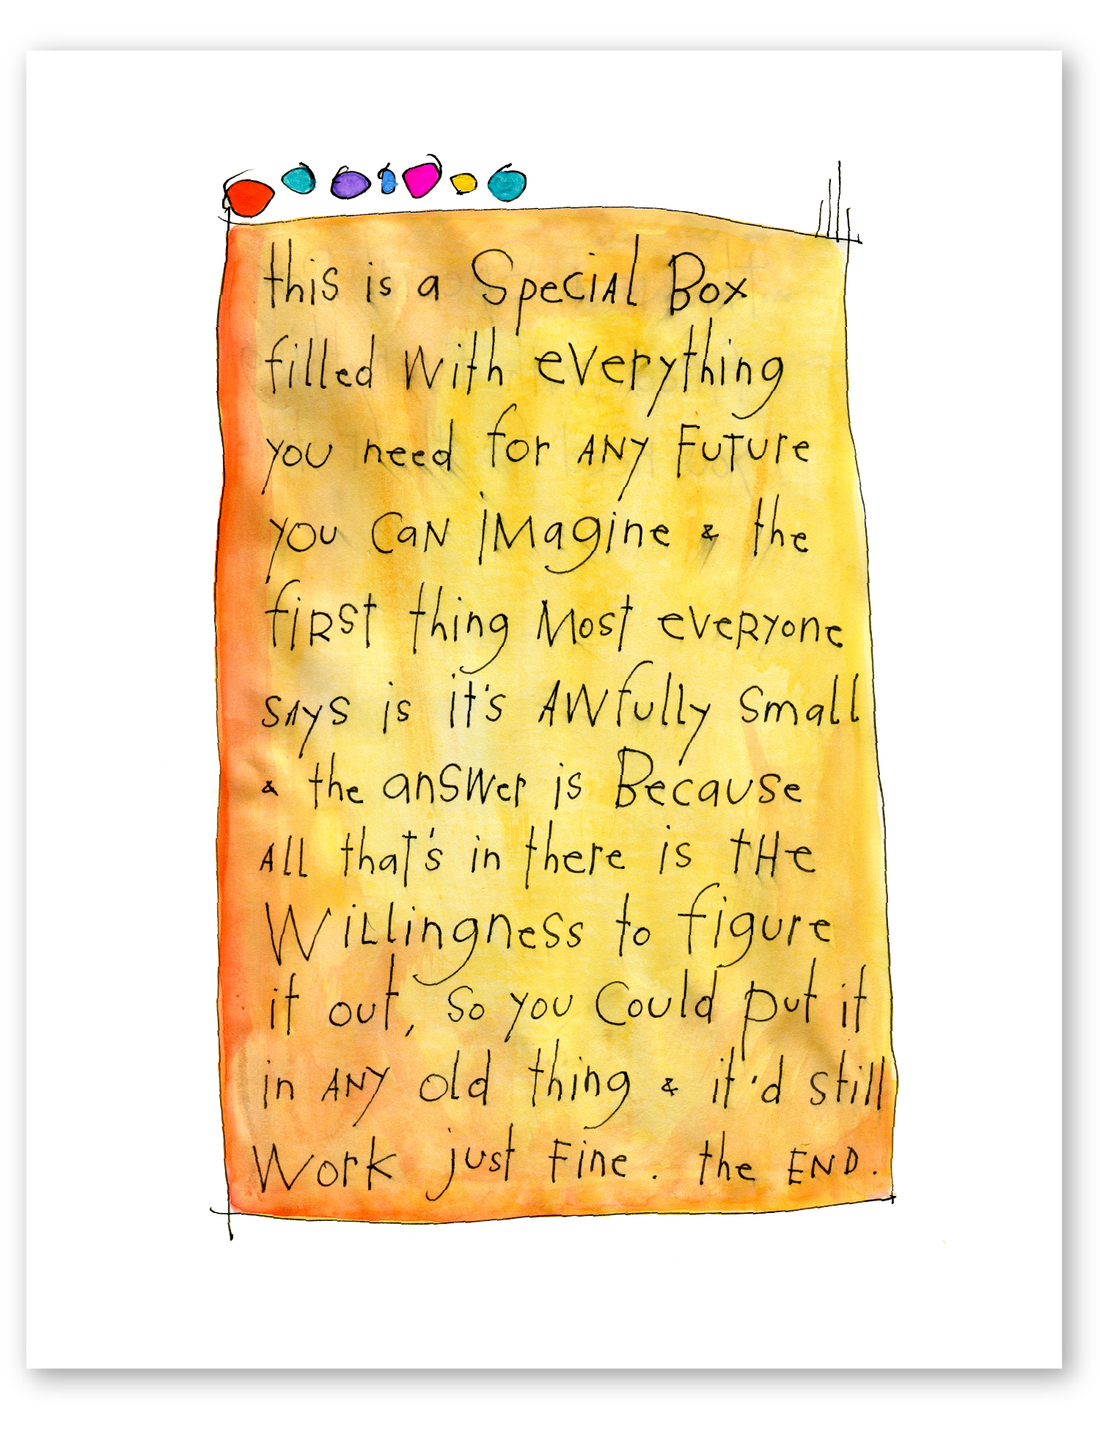 this is a Special Box
filled with everything
you need for ANY Future
you can imagine & the
first thing Most everyone
says is it's AWfully small
& the answer is Because
All that's in there is tHe
Willingness to figure
it out, so you Could put it
in ANY old thing & it'd still
Work just Fine. the END.